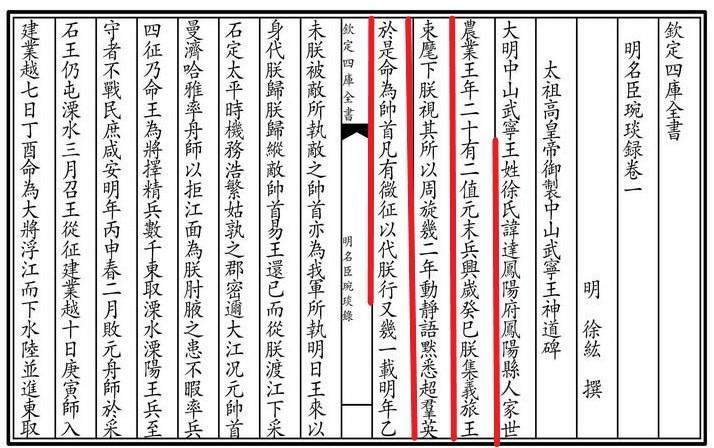 欽定四庫全書
明名臣琬琰録卷一
明 徐紘 撰
太祖高皇帝御製中山武寧王神道碑
大明中山武寧王姓徐氏諱達鳳陽府鳳陽縣人家世
農業王年二十有二值元末兵興嵗癸巳朕集義旅王
束麾下朕視其所以周旋幾二年動靜語默悉超羣英
於是命為帥首凡有微征以代朕行又幾一載明年乙
欽定四庫全書
明名臣琬琰錄
未朕被敵所執敵之帥首亦為我軍所執明日王來以
身代朕歸朕歸縱敵帥首易王還已而從朕渡江下采
石定太平時機務浩繁姑孰之郡密邇大江况元帥首
曼濟哈雅率舟師以拒江面為朕肘腋之患不暇率兵
四征乃命王為將擇精兵數千東取溧水溧陽王兵至
守者不戰民庶咸安明年丙申春二月敗元舟師於采
石王仍屯溧水三月召王從征建業越十日庚寅師入
建業越七日丁酉命為大將浮江而下水陸並進東取